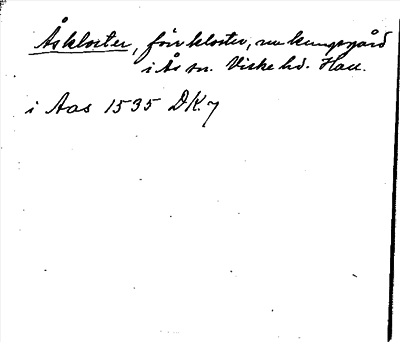 Åskloster, förr kloster, nu kungsgård
i Ås sn. Viske hd. Hall.
i Aas 1535 DK. 7